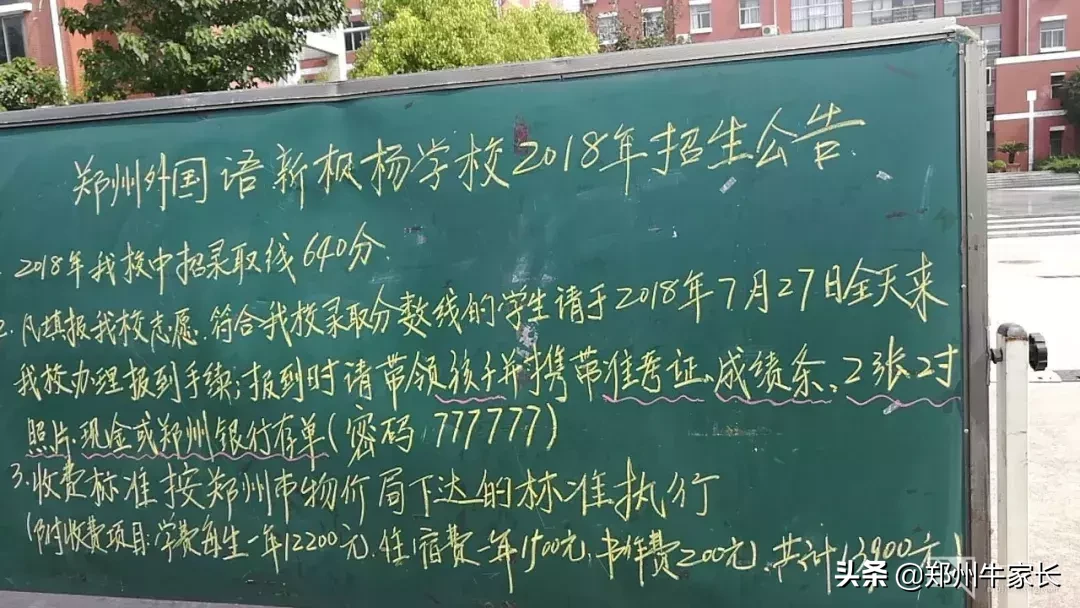 郑州外国语新枫杨学校2018年招生公告
2018年我校中招录取线640分
2. 凡填报我校志愿、符合我校录取分数线的学生请于2018年7月27日全天来
我校办理报到手续;报到时请带领孩子并携带准考证、成绩条、2张2寸
照片、现金或郑州银行存单(密码 777777)
3. 收费标准按郑州市物价局下达的标准执行
(附收费项目:学费每生一年12200元、住宿费一年1500元、书作费200元、共计13900元)
头条 @郑州牛家长